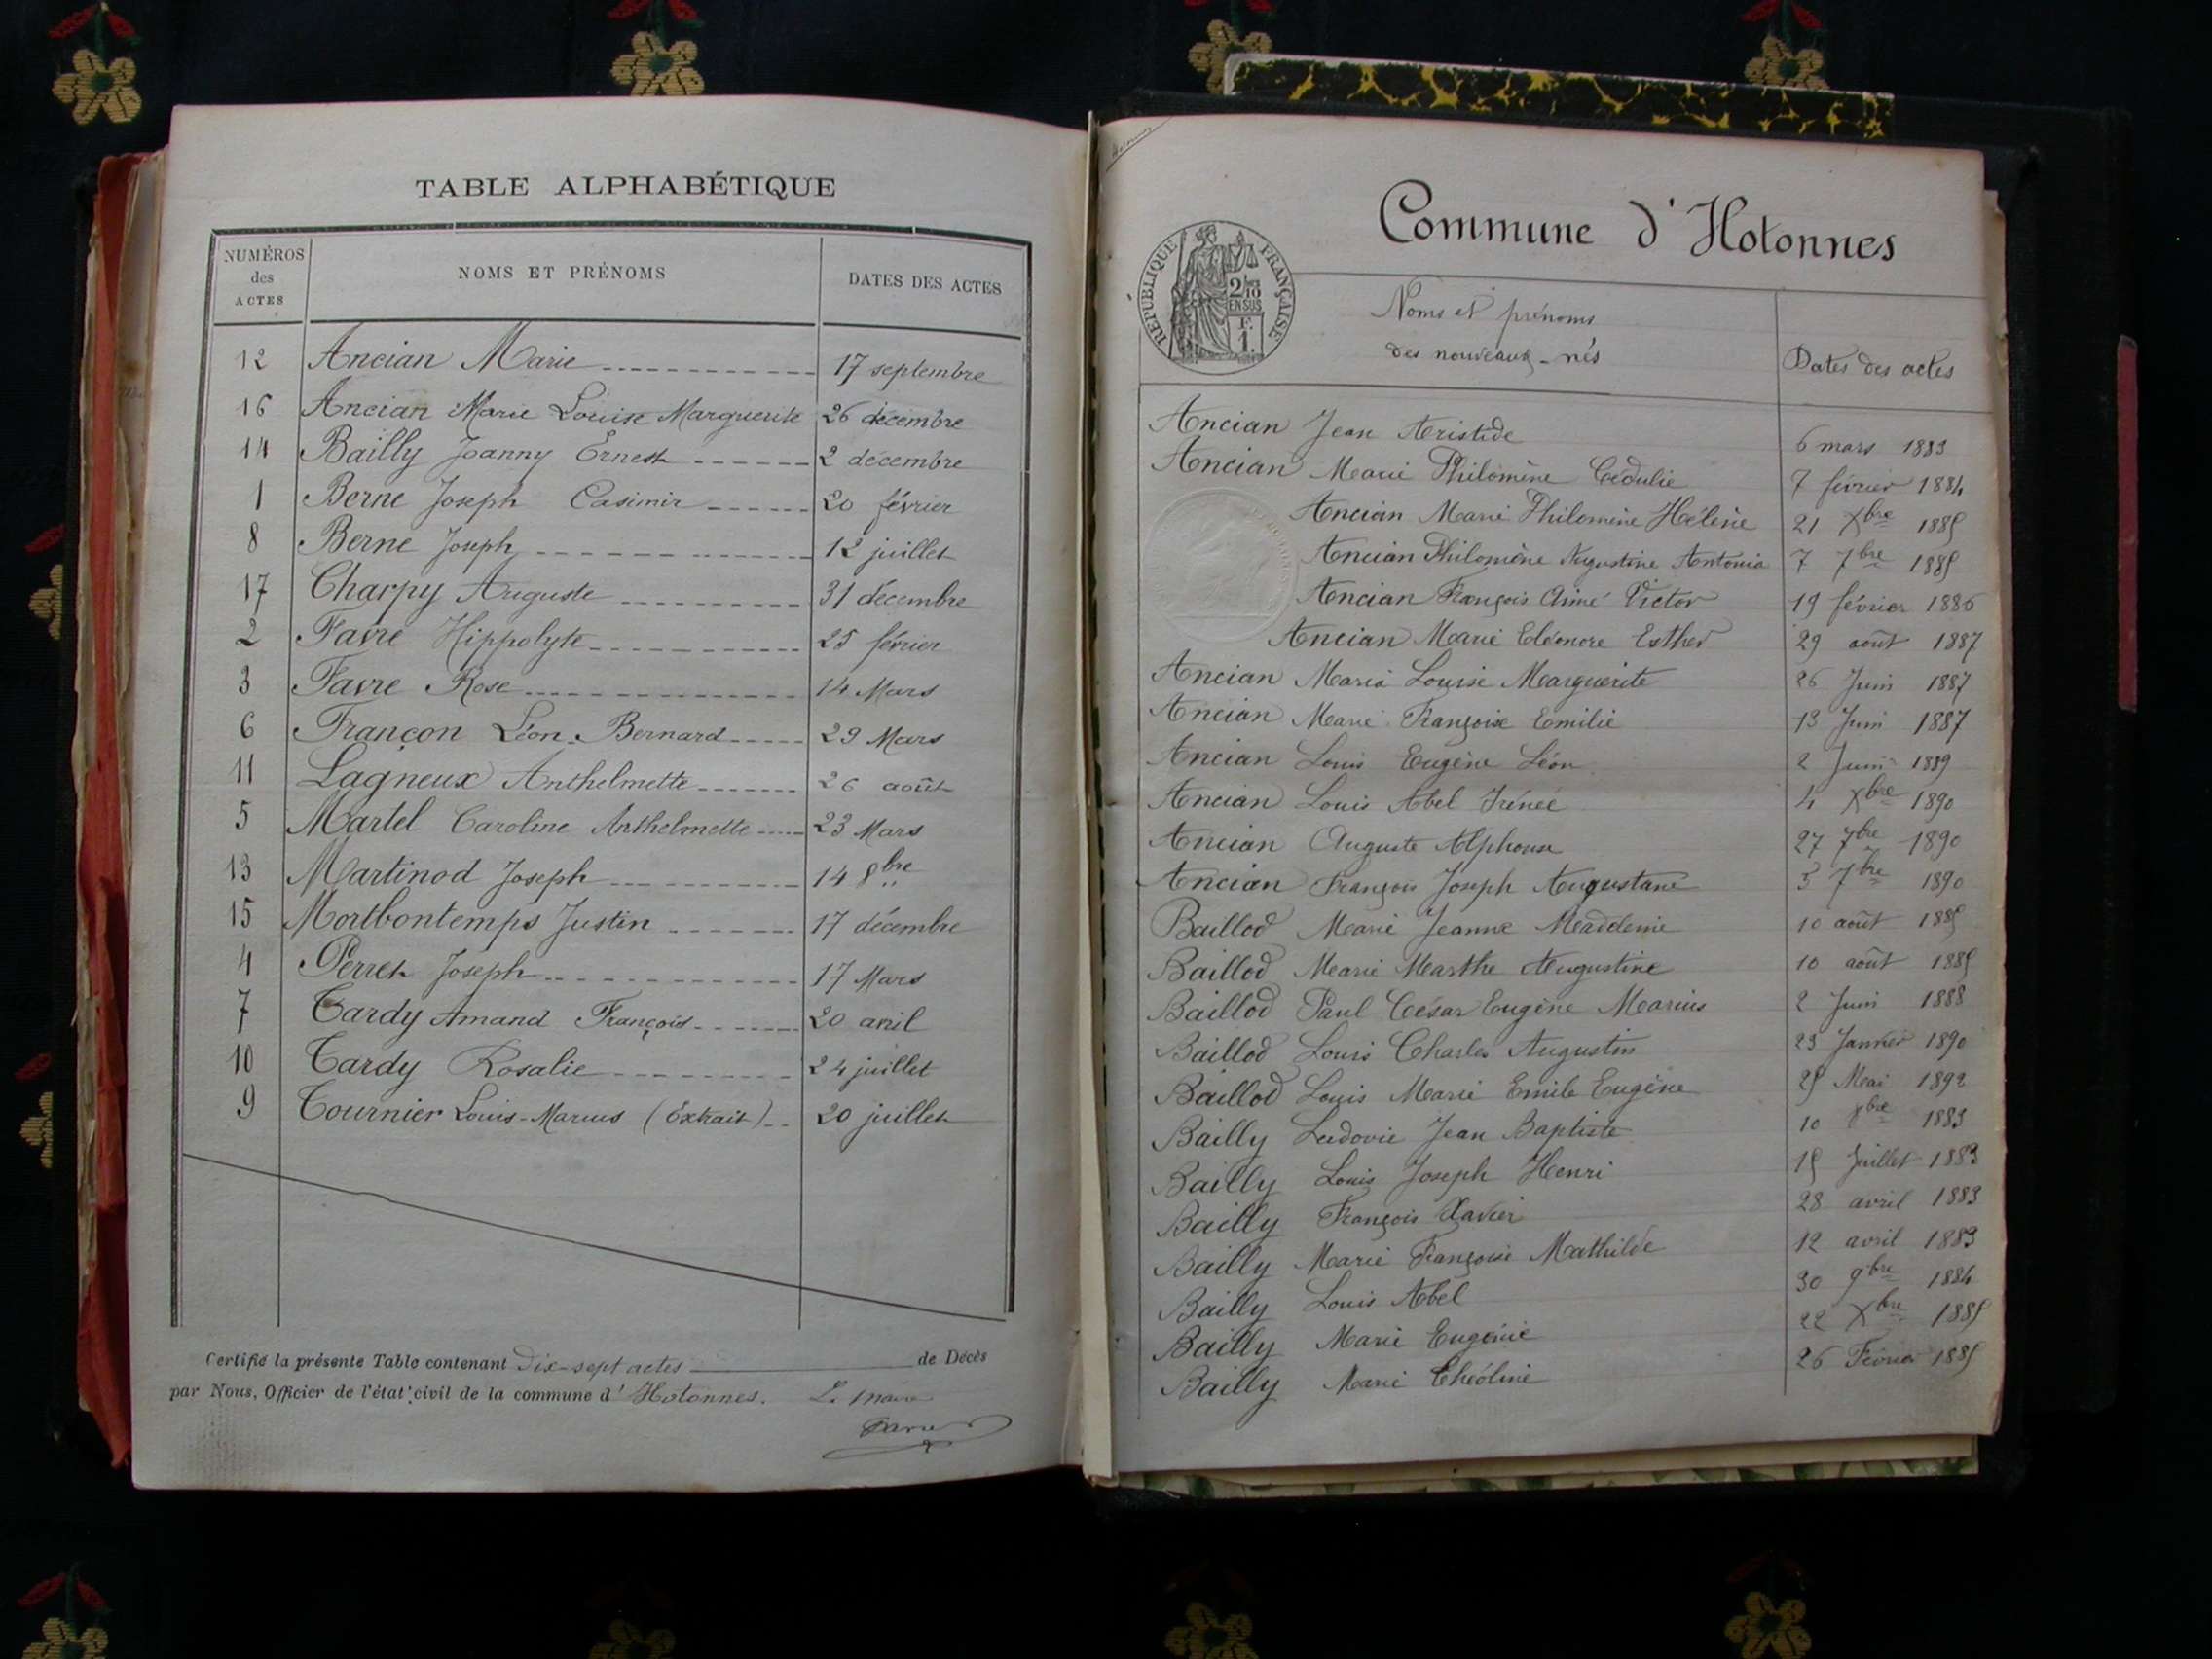 TABLE ALPHABÉTIQUE
NUMÉROS des ACTES NOMS ET PRÉNOMS DATES DES ACTES
12 Ancian Marie 17 septembre
16 Ancian Marie Louise Marguerite 26 décembre
14 Bailly Joanny Ernest 2 décembre
1 Berne Joseph Casimir 20 février
8 Berne Joseph 12 juillet
17 Charpy Auguste 31 décembre
2 Favre Hippolyte 25 février
3 Favre Rose 14 Mars
6 Françon Léon Bernard 29 Mars
11 Lagneux Anthelmette 26 août
5 Martel Caroline Anthelmette 23 Mars
13 Martinod Joseph 14 8bre
15 Mortbontemps Justin 17 décembre
4 Perret Joseph 17 Mars
7 Tardy Amand François 20 avril
10 Tardy Rosalie 24 juillet
9 Tournier Louis-Marius (Extrait) 20 juillet
Certifié la présente Table contenant Dix-sept actes de Décès
par Nous, Officier de l'état civil de la commune d'Hotonnes. Le Maire
Commune d'Hotonnes
RÉPUBLIQUE FRANÇAISE
2/10 EN SUS
F. 1.
Noms et prénoms
des nouveaux-nés
Dates des actes
Ancian Jean Aristide 6 mars 1883
Ancian Marie Philomène Cédulie 7 février 1884
Ancian Marie Philomène Hélène 21 Xbre 1885
Ancian Philomène Augustine Antonia 7 7bre 1885
Ancian François Aimé Victor 19 février 1886
Ancian Marie Eléonore Esther 29 août 1887
Ancian Maria Louise Marguerite 26 Juin 1887
Ancian Marie Françoise Emilie 13 Juin 1887
Ancian Louis Eugène Léon 2 Juin 1889
Ancian Louis Abel Irénée 4 Xbre 1890
Ancian Auguste Alphonse 27 7bre 1890
Ancian François Joseph Augustane 5 7bre 1890
Baillod Marie Jeanne 10 août 1885
Baillod Marie Marthe Augustine 10 août 1885
Baillod Paul César Eugène Marius 2 Juin 1888
Baillod Louis Charles Augustin 23 Janvier 1890
Baillod Louis Marie Emile Eugène 25 Mai 1892
Bailly Ludovic Jean Baptiste 10 1883
Bailly Louis Joseph Henri 15 Juillet 1883
Bailly François Xavier 28 avril 1883
Bailly Marie Françoise Mathilde 12 avril 1883
Bailly Louis Abel 30 9bre 1884
Bailly Marie Eugénie 22 Xbre 1885
Bailly Marie Théoline 26 Février 1885